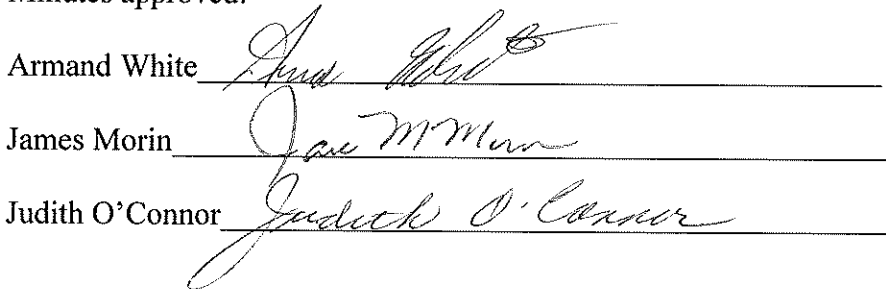 Minutes approved:
Armand White Armand White
James Morin James M Morin
Judith O'Connor Judith O'Connor